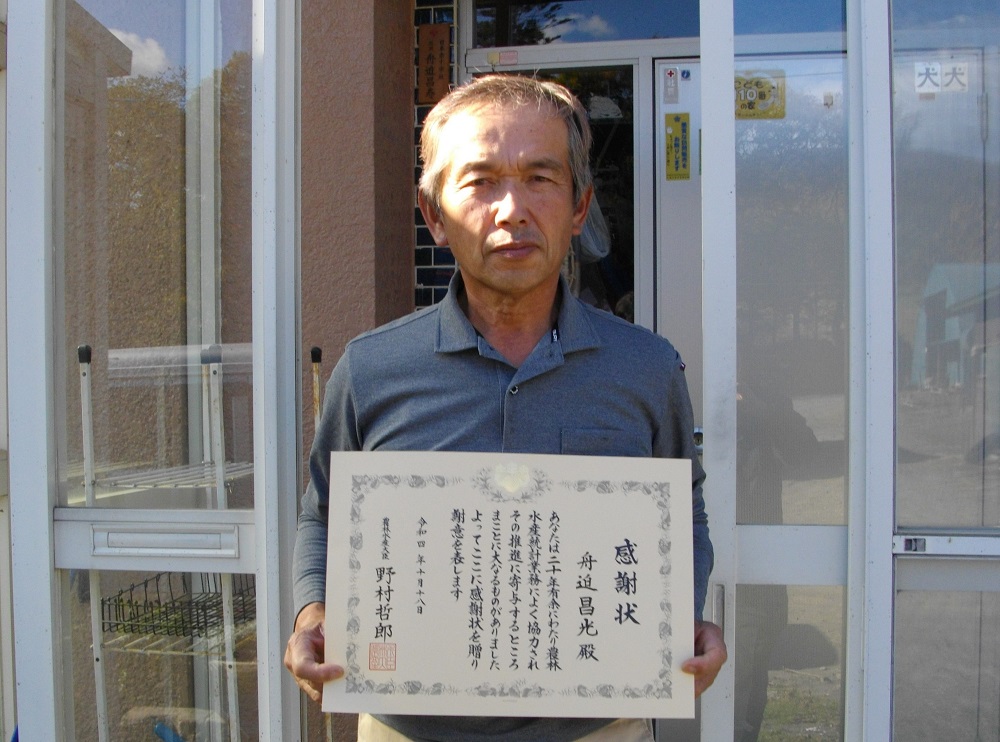 感謝状
舟迫昌光 殿
あなたは二十年有余にわたり農林
水産統計業務によく協力され
その推進に寄与するところ
まことに大なるものがありました
よってここに感謝状を贈り
謝意を表します
令和四年十月十八日
農林水産大臣 野村哲郎
犬 犬
こども
110番
の家